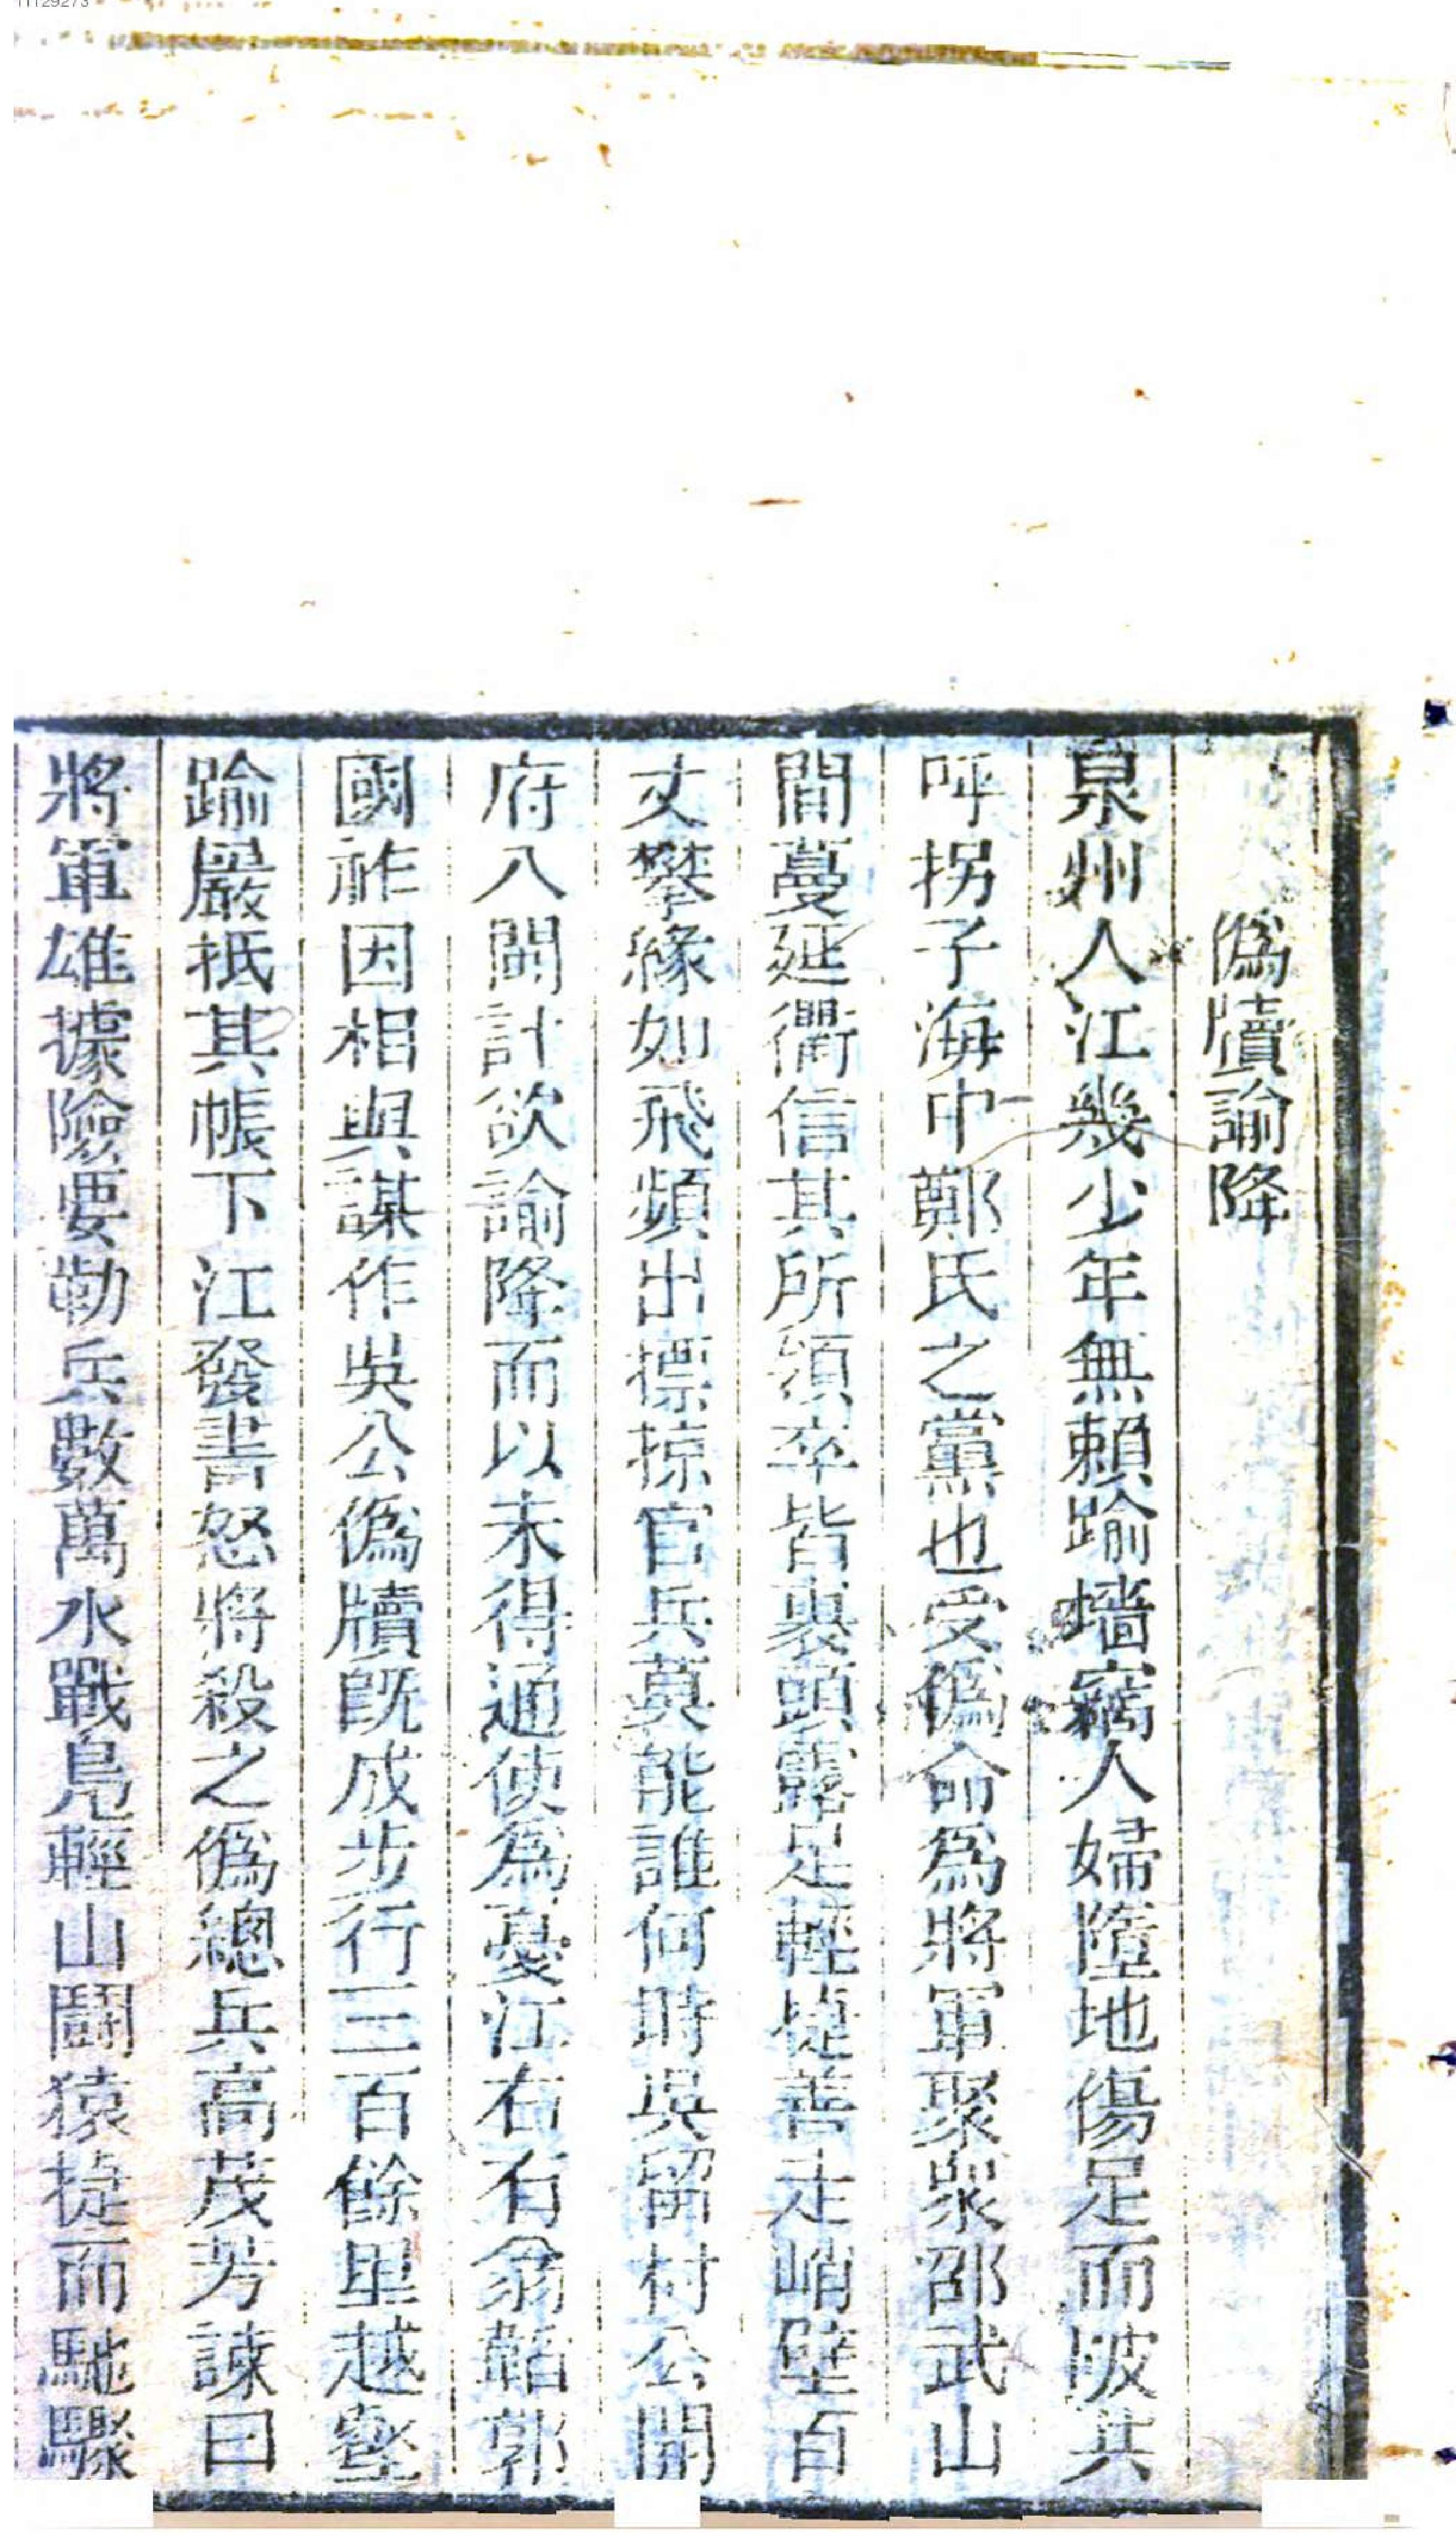 偽牘諭降
泉州人江幾少年無賴踰墻竊人婦墮地傷足而跛其
呼拐子海中鄭氏之黨也受偽命為將軍聚眾邵武山
間蔓延衢信其所領卒皆裹頭露足輕捷善走峭壁百
丈攀緣如飛頻出摽掠官兵莫能誰何時吳留村公開
府入閩計欲諭降而以未得通使為憂江右有翁韜郭
國祚因相與謀作吳公偽牘旣成步行三百餘里越壑
踰巖抵其帳下江發書怒將殺之偽總兵高茂芳諫曰
將軍雄據險要勒兵數萬水戰鳧輕山鬭猿捷而馳驟